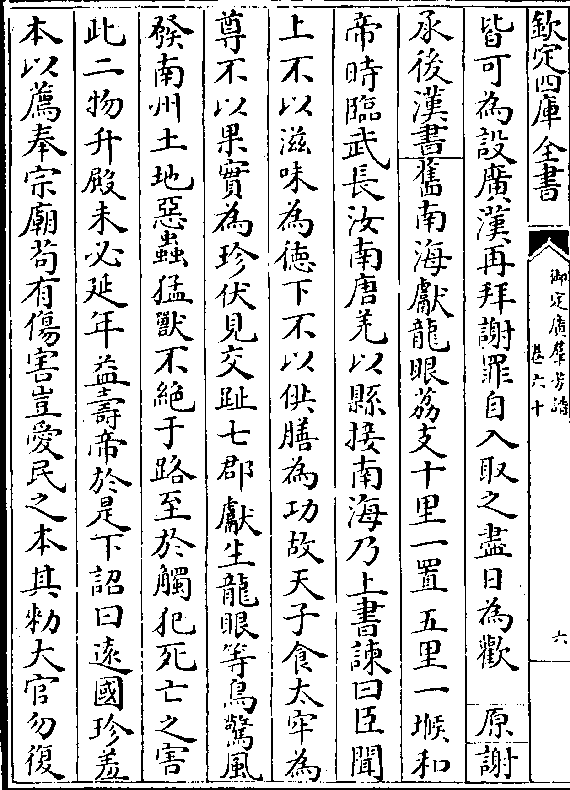 欽定四庫全書
御定廣羣芳譜
卷六十
六
皆可為設廣漢再拜謝罪自入取之盡日為歡 原謝
承後漢書舊南海獻龍眼荔支十里一置五里一堠和
帝時臨武長汝南唐羌以縣接南海乃上書諫曰臣聞
上不以滋味為徳下不以供膳為功故天子食太牢為
尊不以果實為珍伏見交趾七郡獻生龍眼等鳥驚風
發南州土地惡蟲猛獸不絶于路至於觸犯死亡之害
此二物升殿未必延年益壽帝於是下詔曰遠國珍羞
本以薦奉宗廟茍有傷害豈愛民之本其勅大官勿復